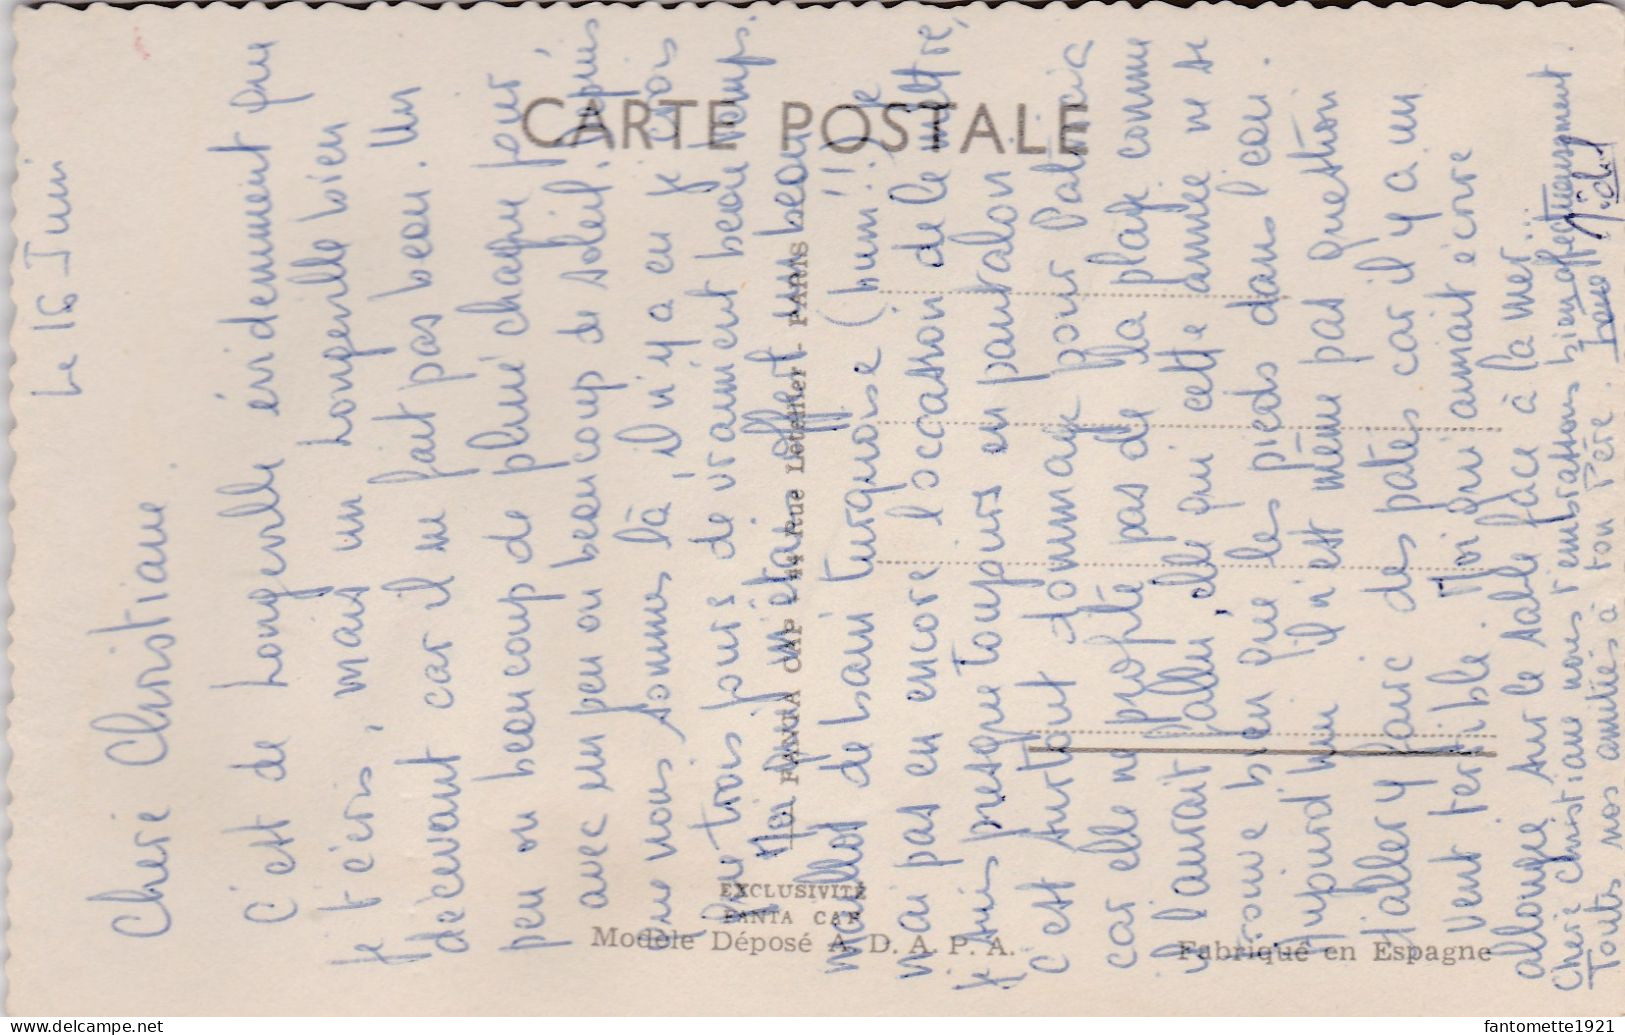 Le 16 Juin
Chère Christiane.
C'est de Longeville évidemment que
je t'écris, mais un Longeville bien
décevant car il ne fait pas beau. Un
peu ou beaucoup de pluie chaque jour
avec un peu ou beaucoup de soleil. Depuis
que nous sommes là, il n'y a eu je crois
que trois jours de vraiment beau temps.
Moi qui m'étais offert un beau
maillot de bain turquoise (hum!!) je
n'ai pas encore l'occasion de le mettre,
je suis presque toujours en pantalon
c'est surtout dommage pour Patricia
car elle ne profite pas de la plage comme
il l'aurait fallu, elle qui cette année ne se
sauve bien que les pieds dans l'eau.
Aujourd'hui il n'est même pas question
d'aller y faire des patés car il y a un
vent terrible. Moi qui aimait écrire
allongée sur le sable face à la mer...
Chère Christiane nous t'embrassons bien affectueusement.
Toutes nos amitiés à ton Père.
CARTE POSTALE
FANTA CAP - 44 Rue Letellier - PARIS
EXCLUSIVITÉ
FANTA CAP
Modèle Déposé A. D. A. P. A.
Fabriqué en Espagne
fantomette1921